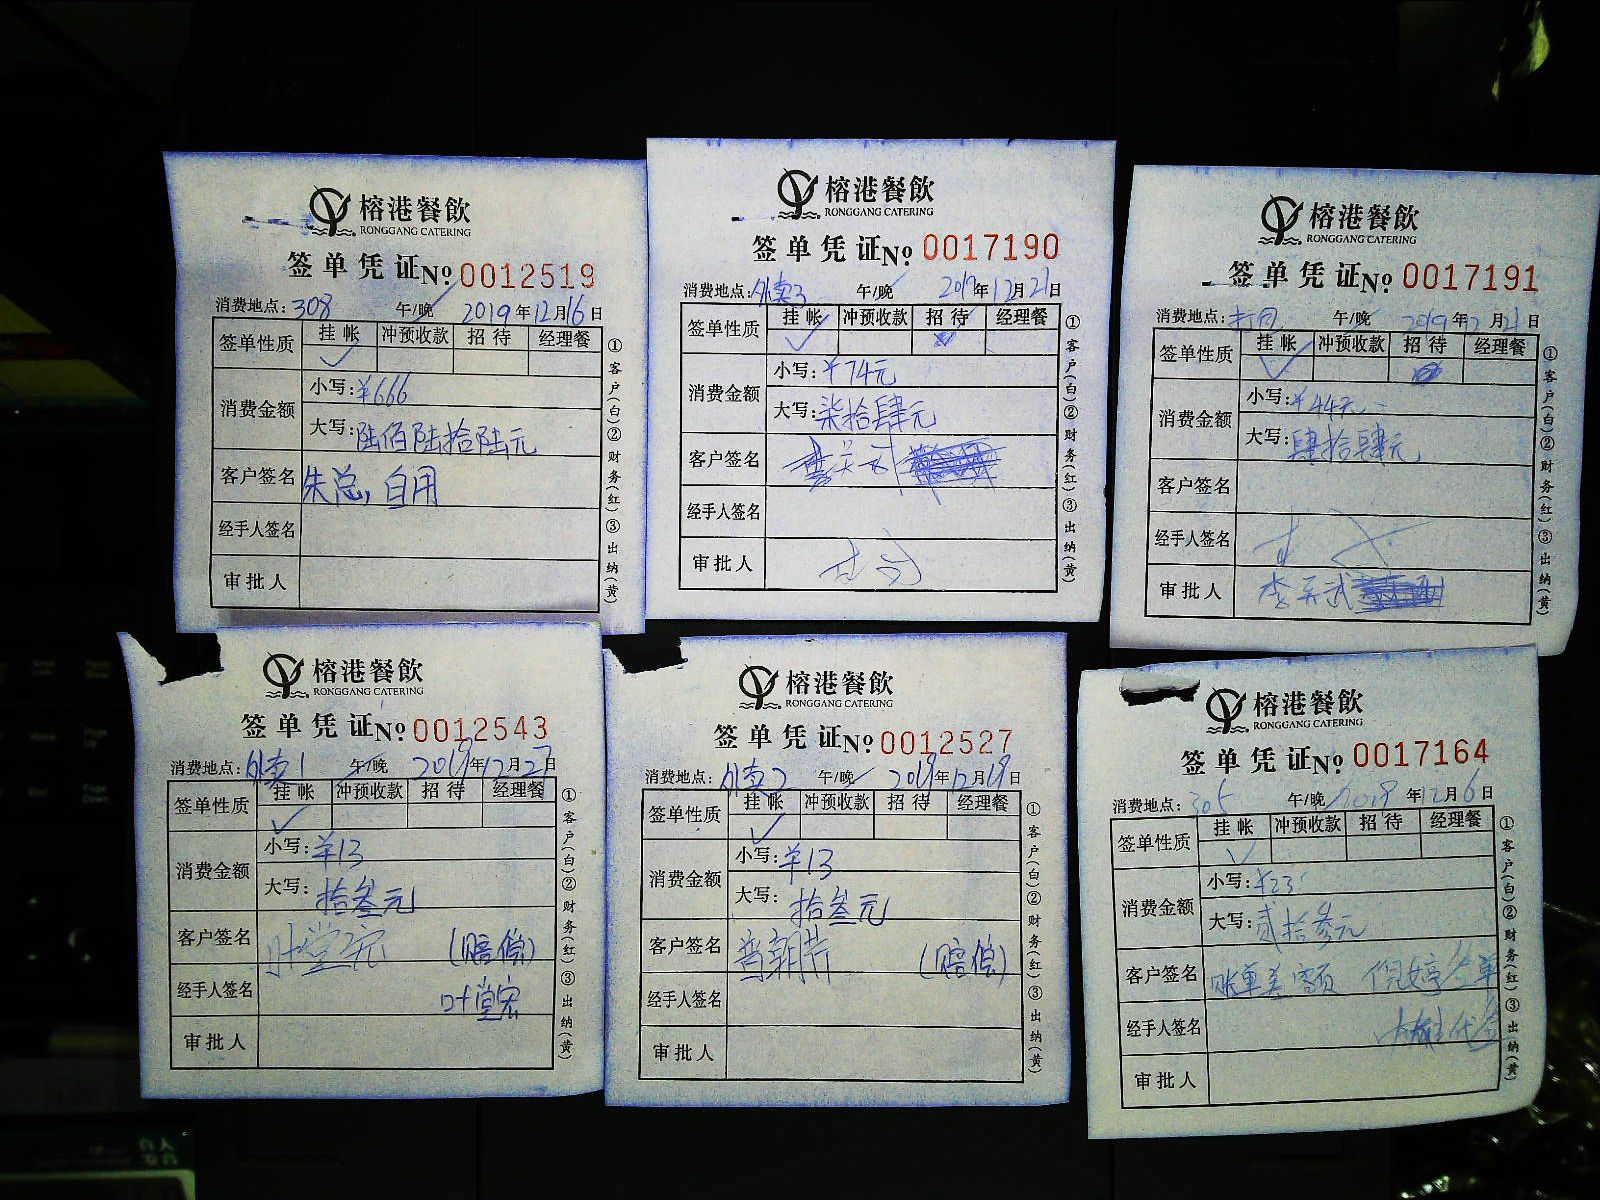 榕港餐飲
RONGGANG CATERING
签单凭证 No. 0012519
消费地点: 308 午/晚 2019年12月16日
签单性质 挂帐 冲预收款 招待 经理餐
消费金额 小写: ¥666
大写: 陆佰陆拾陆元
客户签名 朱总, 自用
经手人签名
审批人
①客户(白)②财务(红)③出纳(黄)
榕港餐飲
RONGGANG CATERING
签单凭证 No. 0017190
消费地点: 外卖3 午/晚 2019年12月21日
签单性质 挂帐 冲预收款 招待 经理餐
消费金额 小写: ¥74元
大写: 柒拾肆元
客户签名
经手人签名
审批人
①客户(白)②财务(红)③出纳(黄)
榕港餐飲
RONGGANG CATERING
签单凭证 No. 0017191
消费地点: 打包 午/晚 2019年12月21日
签单性质 挂帐 冲预收款 招待 经理餐
消费金额 小写: ¥44元
大写: 肆拾肆元
客户签名
经手人签名
审批人 李天武
①客户(白)②财务(红)③出纳(黄)
榕港餐飲
RONGGANG CATERING
签单凭证 No. 0012543
消费地点: 外卖1 午/晚 2019年12月27日
签单性质 挂帐 冲预收款 招待 经理餐
消费金额 小写: ¥13
大写: 拾叁元
客户签名 叶堂宏 (赔偿)
经手人签名 叶堂宏
审批人
①客户(白)②财务(红)③出纳(黄)
榕港餐飲
RONGGANG CATERING
签单凭证 No. 0012527
消费地点: 外卖2 午/晚 2019年12月19日
签单性质 挂帐 冲预收款 招待 经理餐
消费金额 小写: ¥13
大写: 拾叁元
客户签名 (赔偿)
经手人签名
审批人
①客户(白)②财务(红)③出纳(黄)
榕港餐飲
RONGGANG CATERING
签单凭证 No. 0017164
消费地点: 305 午/晚 2019年12月6日
签单性质 挂帐 冲预收款 招待 经理餐
消费金额 小写: ¥23
大写: 贰拾叁元
客户签名 账单差额 倪婷签单
经手人签名
审批人
①客户(白)②财务(红)③出纳(黄)